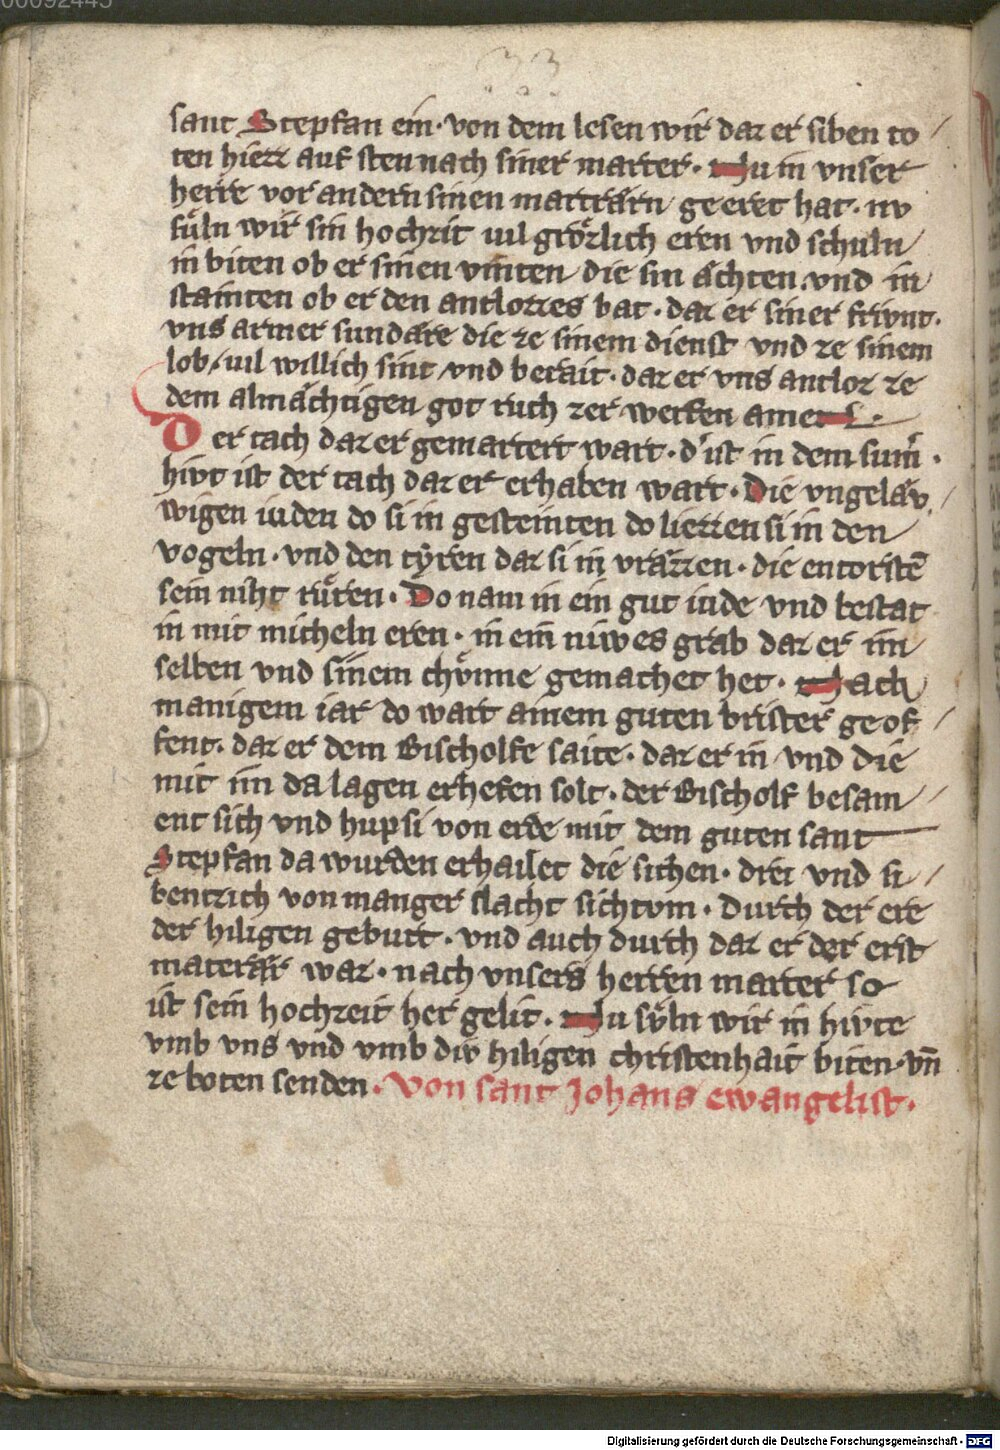 00092445
33
sant Stepfan ein· von dem lesen wir daz er siben to /
ten hiezz auf sten nach siner marter· Nu in vnser
herre vor andern sinen martrærn geeret hat· nv
suͤln wir sin hochzit uil groͤzlich eren vnd schuln
in biten ob er sinen vinten die sin æchten vnd in
stainten ob er den antlozzes bat· daz er siner frivnt·
vns armer sundære die ze sinem dienst vnd ze sinem
lob / uil willich sint vnd berait· daz er vns antloz ze
dem almæchtigen got ruch zer werfen amen·
Der tach daz er gemartert wart· d' ist in dem sum̄·
hivt ist der tach daz er erhaben wart· Die vngelav /
wigen iuden do si in gesteinten do liezzen si in den
vogeln· vnd den tyͤren daz si in vræzzen· die entorstē
sein niht ruͤren· Do nam in ein gut iude vnd bestat
in mit micheln eren· in ein niwes grab daz er im
selben vnd sinem chvͤnne gemachet het· Nach
manigem iar do wart ainem guten brister geof /
fent· daz er dem Bischolfe saite· daz er in vnd die
mit im da lagen erhefen solt· der Bischolf besam /
ent sich vnd hup si von erde mit dem guten sant
Stepfan da wurden erhailet die sichen· drei vnd si /
bentzich von manger slacht sichtvm· durch der ere
der hiligen geburt· vnd auch durch daz er der erst
materær waz· nach vnsers herren marter so
ist sein hochzeit her gelit· Nu svͤln wir in hivte
vmb vns vnd vmb div hiligen christenhait biten· vn̄
ze boten senden· Von sant Johans ewangelist·
Digitalisierung gefördert durch die Deutsche Forschungsgemeinschaft - DFG